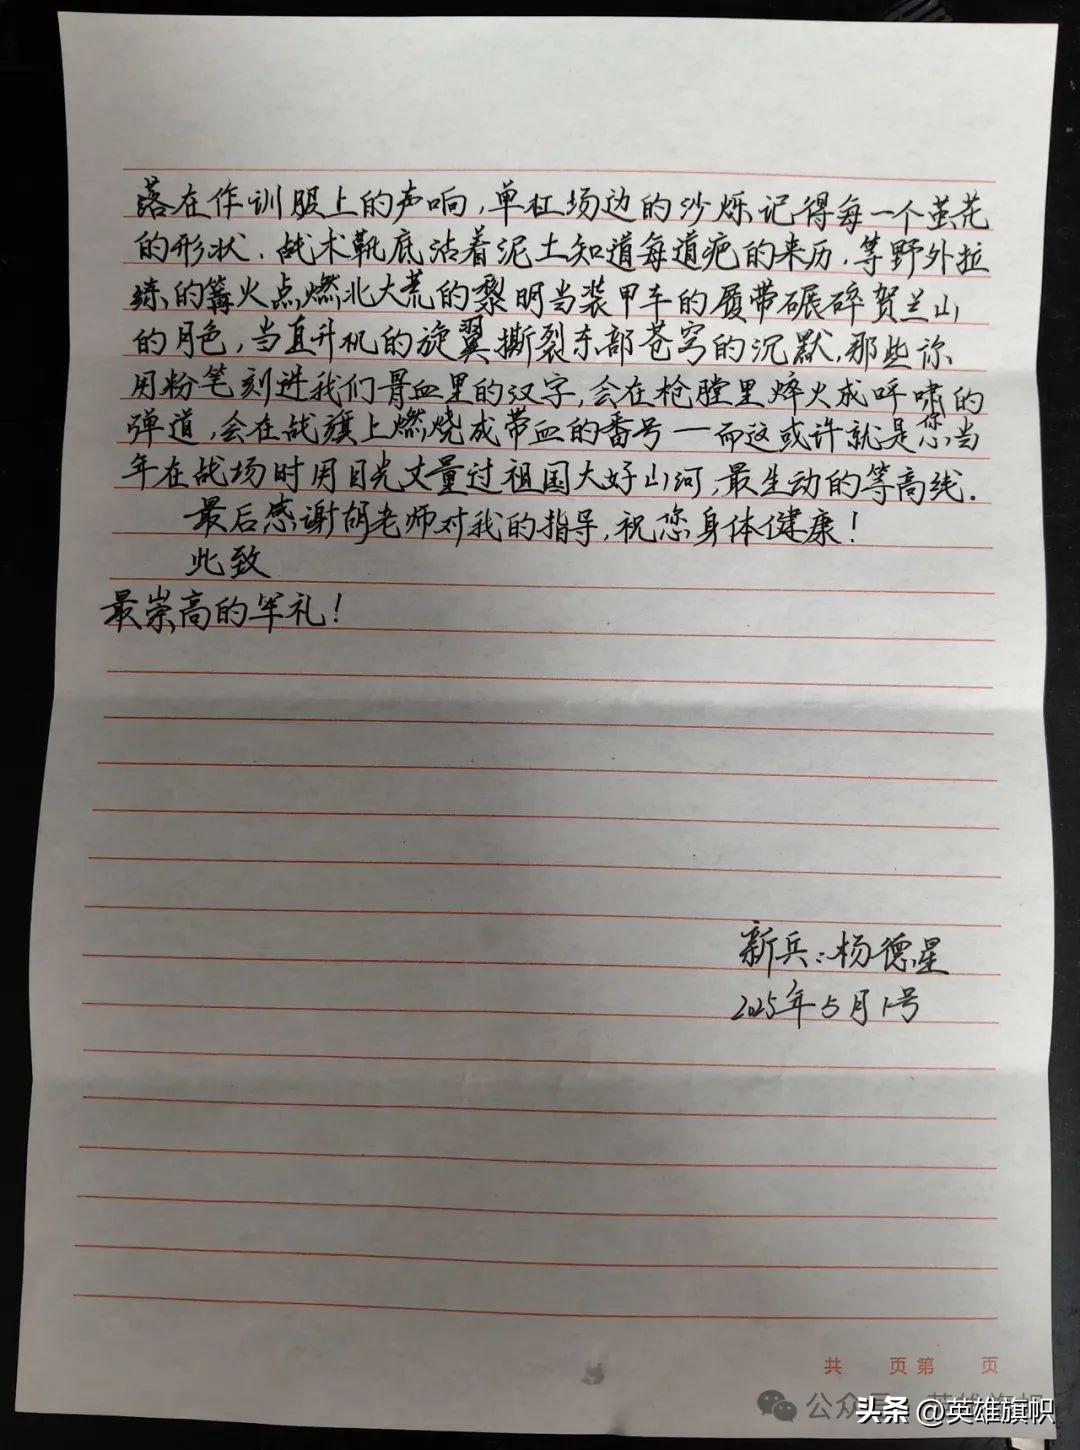 落在作训服上的声响,单杠场边的沙烁记得每一个茧花
的形状.战术靴底沾着泥土知道每道疤的来历.等野外拉
练的篝火点燃北大荒的黎明当装甲车的履带碾碎贺兰山
的月色,当直升机的旋翼撕裂东部苍穹的沉默,那些你
用粉笔刻进我们骨血里的汉字,会在枪膛里焠火成呼啸的
弹道,会在战旗上燃烧成带血的番号—而这或许就是您当
年在战场时用目光丈量过祖国大好山河,最生动的等高线.
最后感谢胡老师对我的指导,祝您身体健康!
此致
最崇高的军礼!
新兵:杨德星
2025年5月1号
共 页第 页
公众号 英雄旗帜
头条 @英雄旗帜